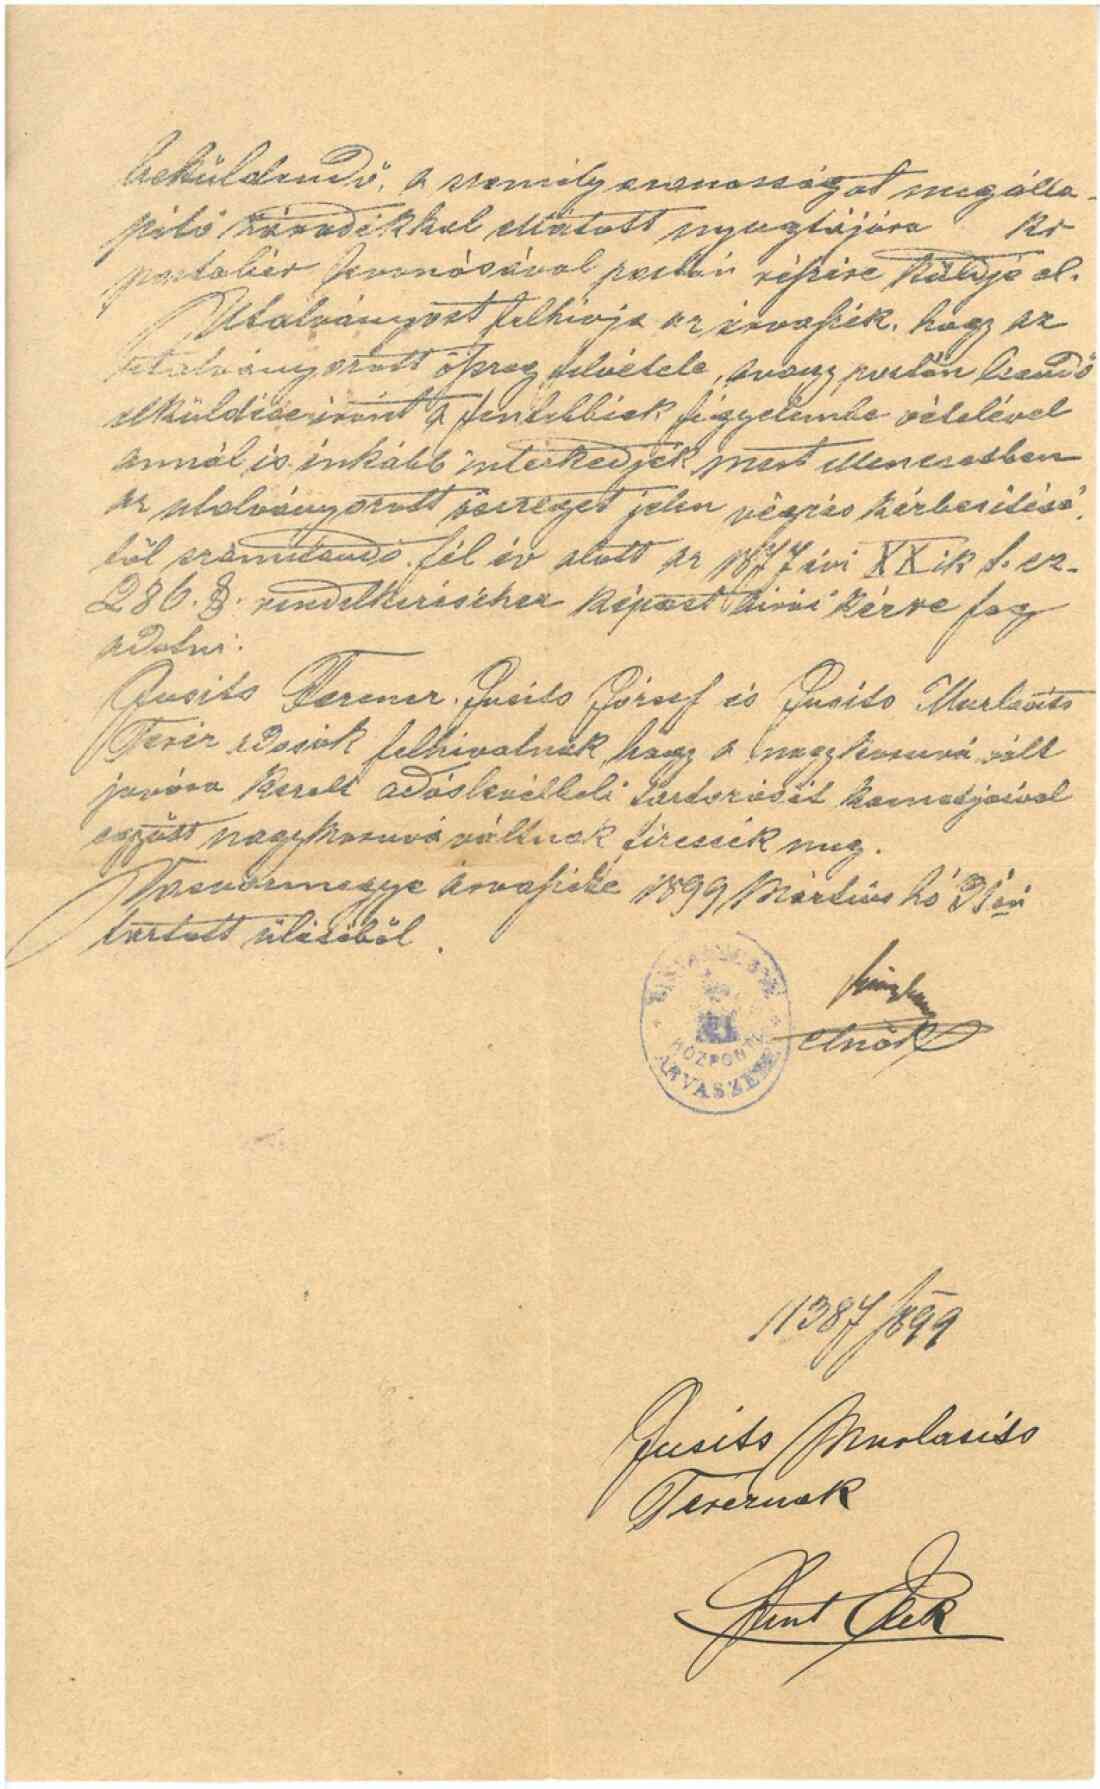 beküldendő, a személyazonosságot megálla-
pító záradékkal ellátott nyugtájára kr
postabér levonásával postán részére küldje el.
Utalványost felhivja az árvaszék, hogy az
utalványozott összeg felvétele, avagy postán leendő
elküldése iránt a fentebbiek figyelembe vételével
annál is inkább intézkedjék, mert ellenesetben
az utalványozott összeget jelen végzés kézbesítésé-
től számítandó fél év alatt az 1877 évi XXik t. cz.
286. §. rendelkezéséhez képest birói kézre fog
adatni.
Jusits Ferencz, Jusits József és Jusits Murlasits
Teréz adósok felhivatnak, hogy a nagykorúvá vált
javára kezelt adóslevélbeli tartozásit kamatjaival
együtt nagykorúvá váltnak fizessék meg.
Vasvármegye árvaszéke 1899 Március hó 21én
tartott üléséből.
KÖZPONTI
ÁRVASZÉK
elnök
11387/899
Jusits Murlasits
Teréznek